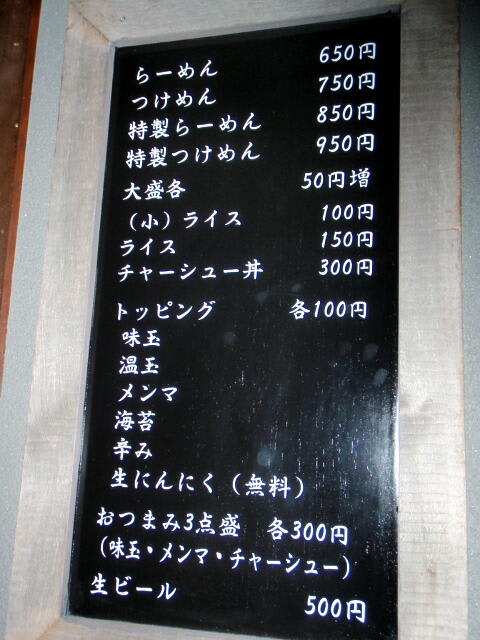 らーめん 650円
つけめん 750円
特製らーめん 850円
特製つけめん 950円
大盛各 50円増
（小）ライス 100円
ライス 150円
チャーシュー丼 300円
トッピング 各100円
味玉
温玉
メンマ
海苔
辛み
生にんにく（無料）
おつまみ3点盛 各300円
（味玉・メンマ・チャーシュー）
生ビール 500円